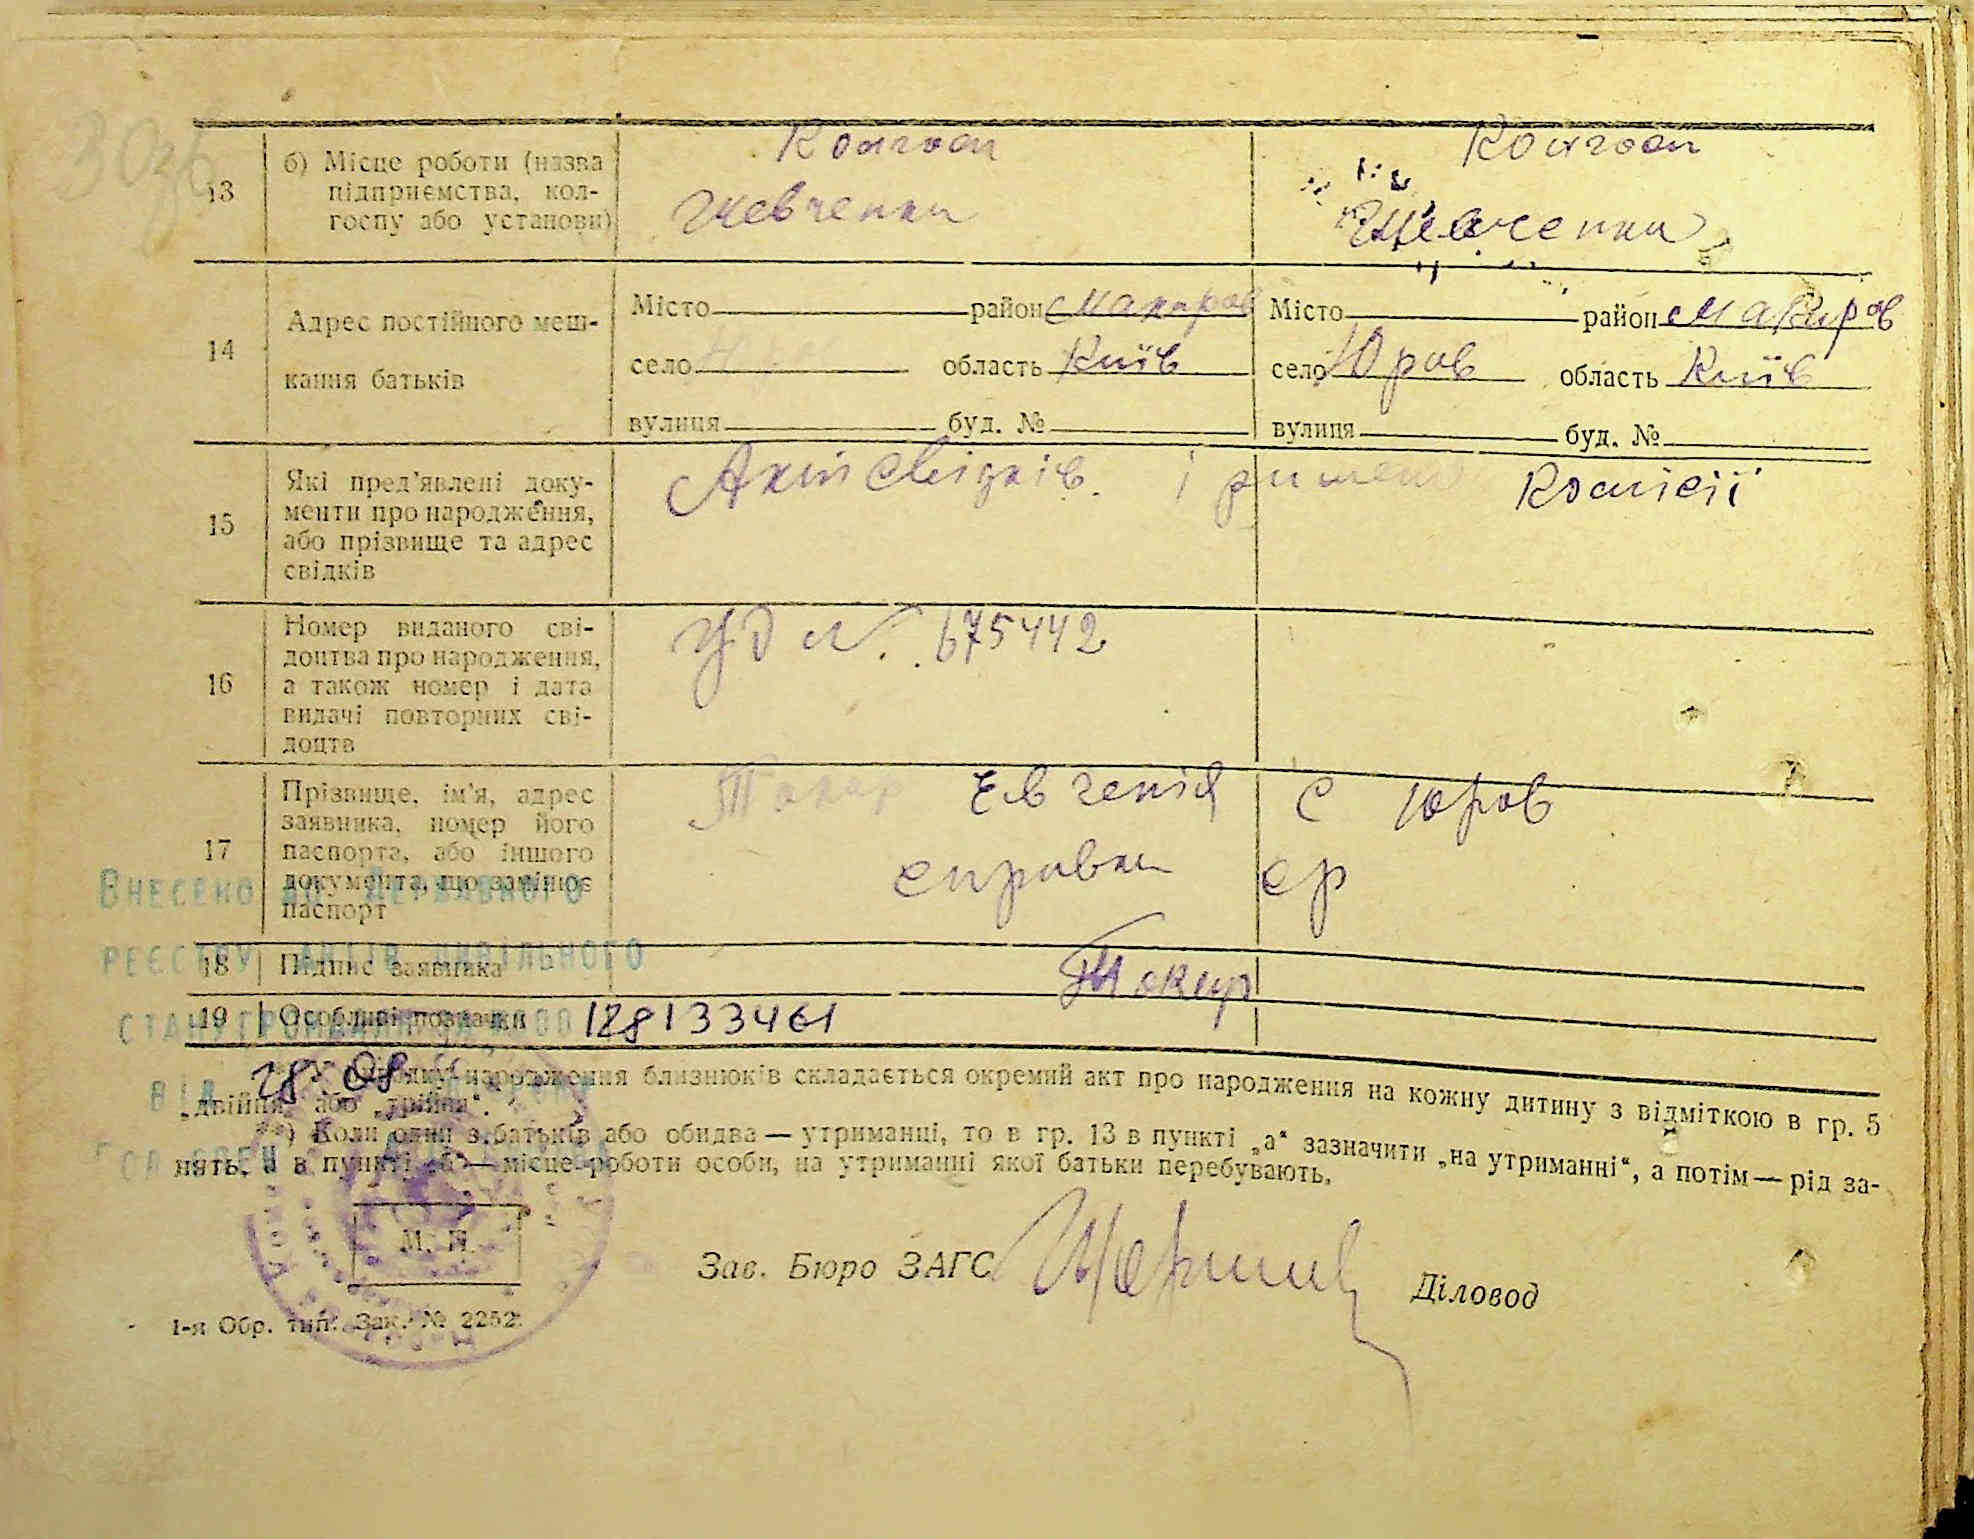 13
б) Місце роботи (назва
підприємства, кол-
госпу або установи)
Колгосп
Шевченка
Колгосп
Шевченка
14
Адрес постійного меш-
кання батьків
Місто район Макаров
село область Київ
вулиця буд. №
Місто район Макаров
село Юров область Київ
вулиця буд. №
15
Які пред'явлені доку-
менти про народження,
або прізвище та адрес
свідків
Акт свідків і комісії
16
Номер виданого сві-
доцтва про народження,
а також номер і дата
видачі повторних сві-
доцтв
УД № 675442
17
Прізвище, ім'я, адрес
заявника, номер його
паспорта, або іншого
документа, що замінює
паспорт
Токар Євгенія с Юров
справка ср
18 Підпис заявника
Токар
19 Особливі позначки 128133461
Внесено до Державного
реєстру актів цивільного
стану громадян за №
від 28 08
народження близнюків складається окремий акт про народження на кожну дитину з відміткою в гр. 5
„двійня“ або „трійня“.
**) Коли один з батьків або обидва — утриманці, то в гр. 13 в пункті „а“ зазначити „на утриманні“, а потім — рід за-
нять, а в пункті „б“ — місце роботи особи, на утриманні якої батьки перебувають.
М. П.
Зав. Бюро ЗАГС
Діловод
1-я Обр. тип. Зак. № 2252.